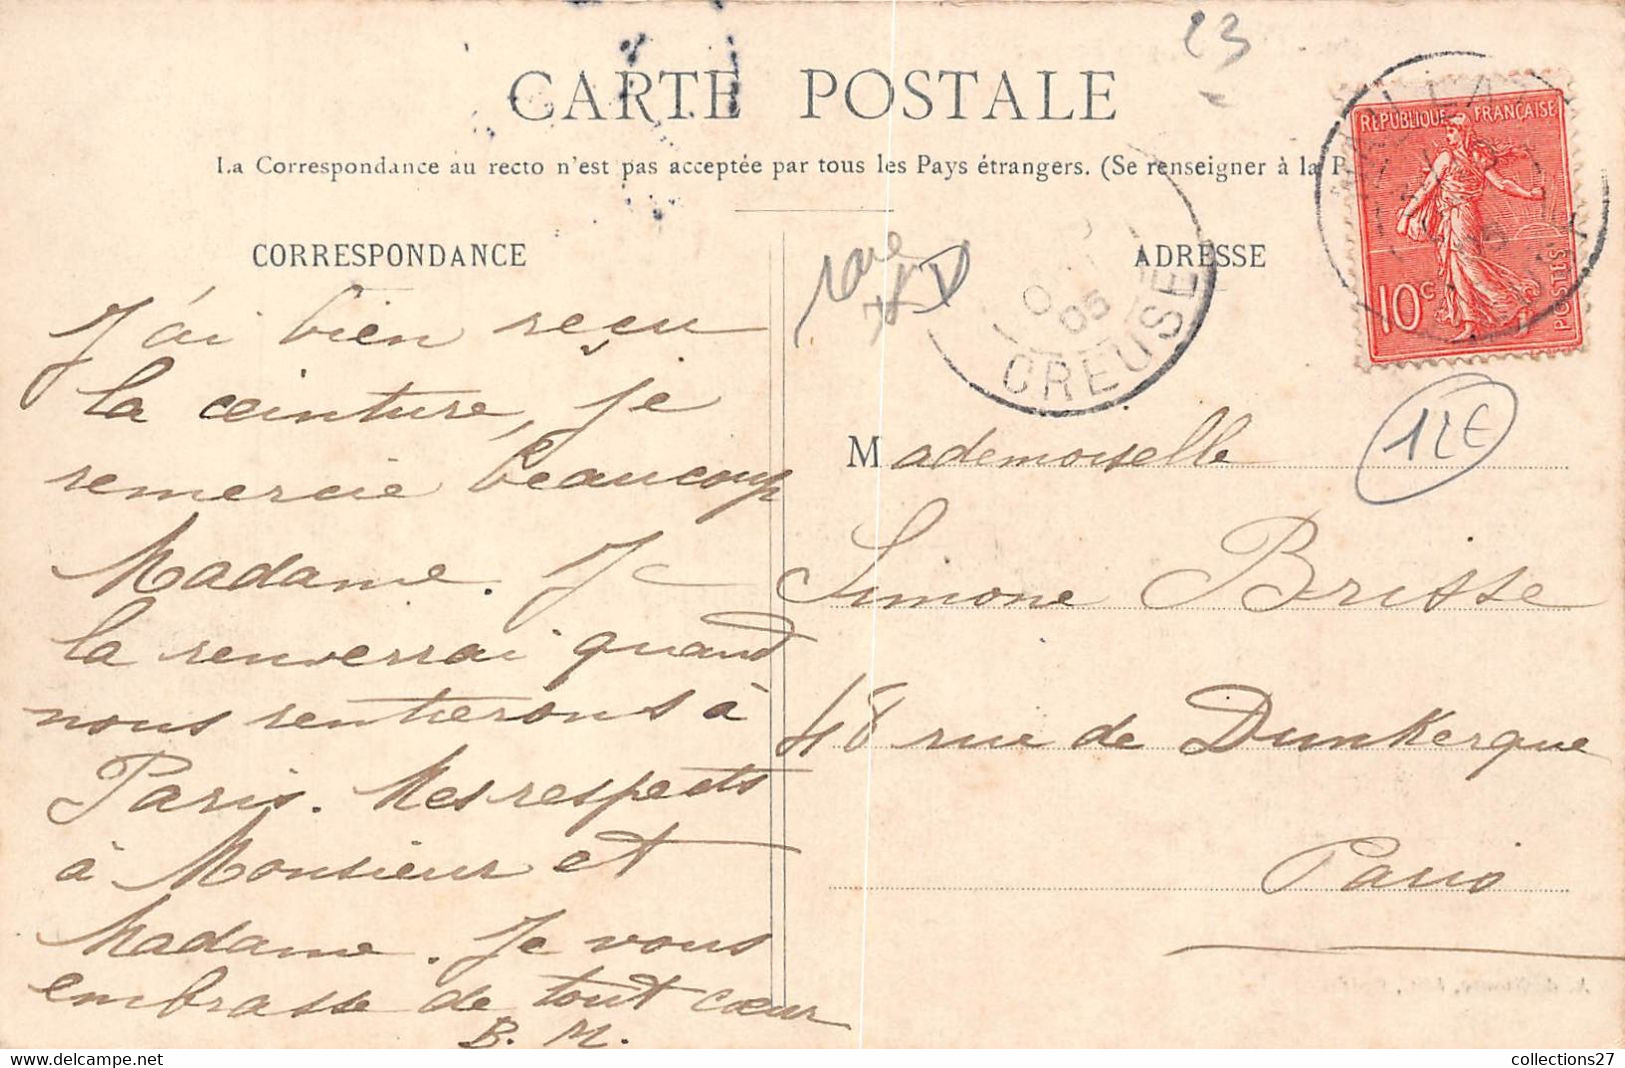 23
CARTE POSTALE
La Correspondance au recto n'est pas acceptée par tous les Pays étrangers. (Se renseigner à la P
CORRESPONDANCE
J'ai bien reçu
la ceinture, je
remercie beaucoup
Madame. Je
la renverrai quand
nous rentrerons à
Paris. Mes respects
à Monsieur et
Madame. Je vous
embrasse de tout cœur
B. M.
rare
ADRESSE
CREUSE
05
REPUBLIQUE FRANÇAISE
10c
POSTES
12€
Mademoiselle
Simone Brisse
48 rue de Dunkerque
Paris
collections27